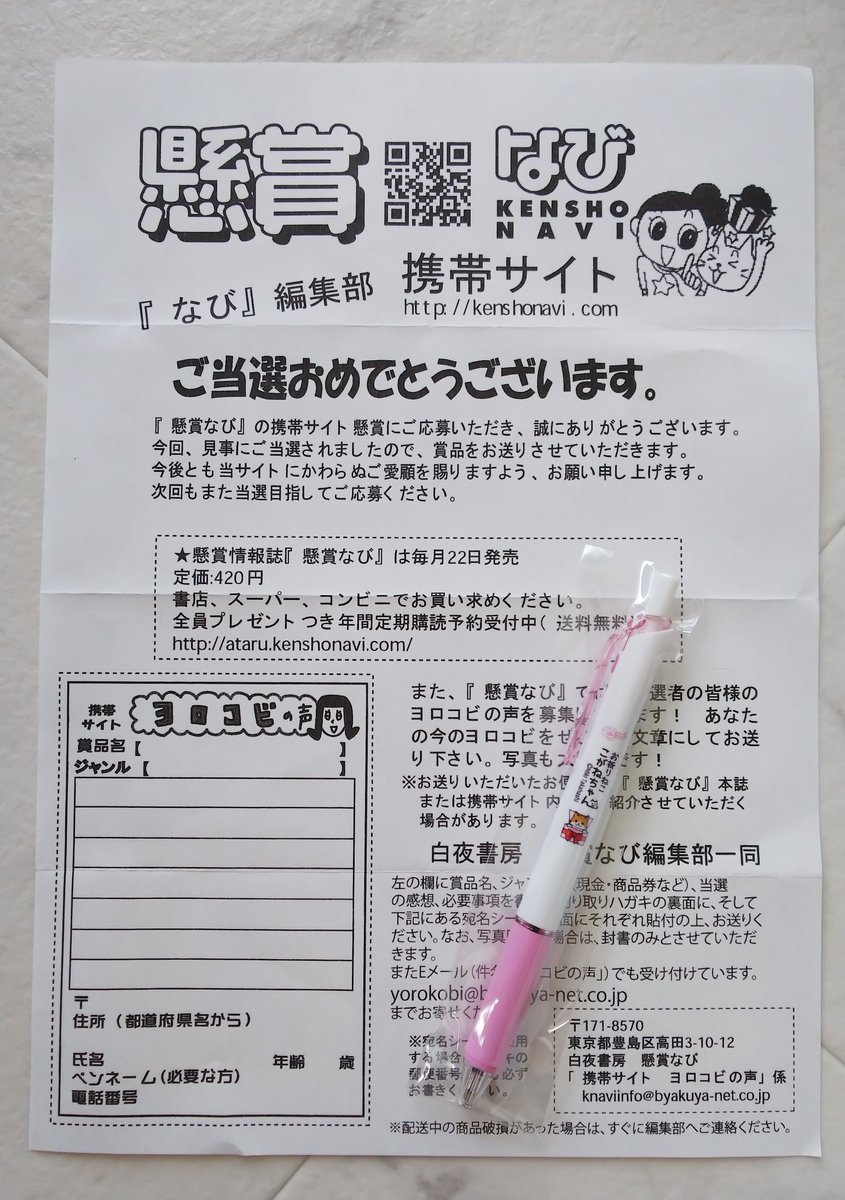 懸賞なび
KENSHO
NAVI
『なび』編集部 携帯サイト
http://kenshonavi.com
ご当選おめでとうございます。
『懸賞なび』の携帯サイト懸賞にご応募いただき、誠にありがとうございます。
今回、見事にご当選されましたので、賞品をお送りさせていただきます。
今後とも当サイトにかわらぬご愛顧を賜りますよう、お願い申し上げます。
次回もまた当選目指してご応募ください。
★懸賞情報誌『懸賞なび』は毎月22日発売
定価:420円
書店、スーパー、コンビニでお買い求めください。
全員プレゼントつき年間定期購読予約受付中(送料無料
http://ataru.kenshonavi.com/
携帯サイト ヨロコビの声
賞品名【 】
ジャンル【 】
〒
住所(都道府県名から)
氏名 年齢 歳
ペンネーム(必要な方)
電話番号
また、『懸賞なび』で 選者の皆様の
ヨロコビの声を募集 ます! あなた
の今のヨロコビをぜ 文章にしてお送
り下さい。写真も です!
※お送りいただいたお便 『懸賞なび』本誌
または携帯サイト内 紹介させていただく
場合があります。
白夜書房 賞なび編集部一同
左の欄に賞品名、ジャン 現金・商品券など)、当選
の感想、必要事項を 切り取りハガキの裏面に、そして
下記にある宛名シー 面にそれぞれ貼付の上、お送りく
ださい。なお、写真 場合は、封書のみとさせていただ
きます。
またEメール(件名 コビの声」)でも受け付けています。
yorokobi@byakuya-net.co.jp
までお寄せくだ
※宛名シー 使用
する場合 キの
郵便番号 必ず
お書きく さい。
お祈りねこ
こがねちゃん
〒171-8570
東京都豊島区高田3-10-12
白夜書房 懸賞なび
「携帯サイト ヨロコビの声」係
knaviinfo@byakuya-net.co.jp
※配送中の商品破損があった場合は、すぐに編集部へご連絡ください。